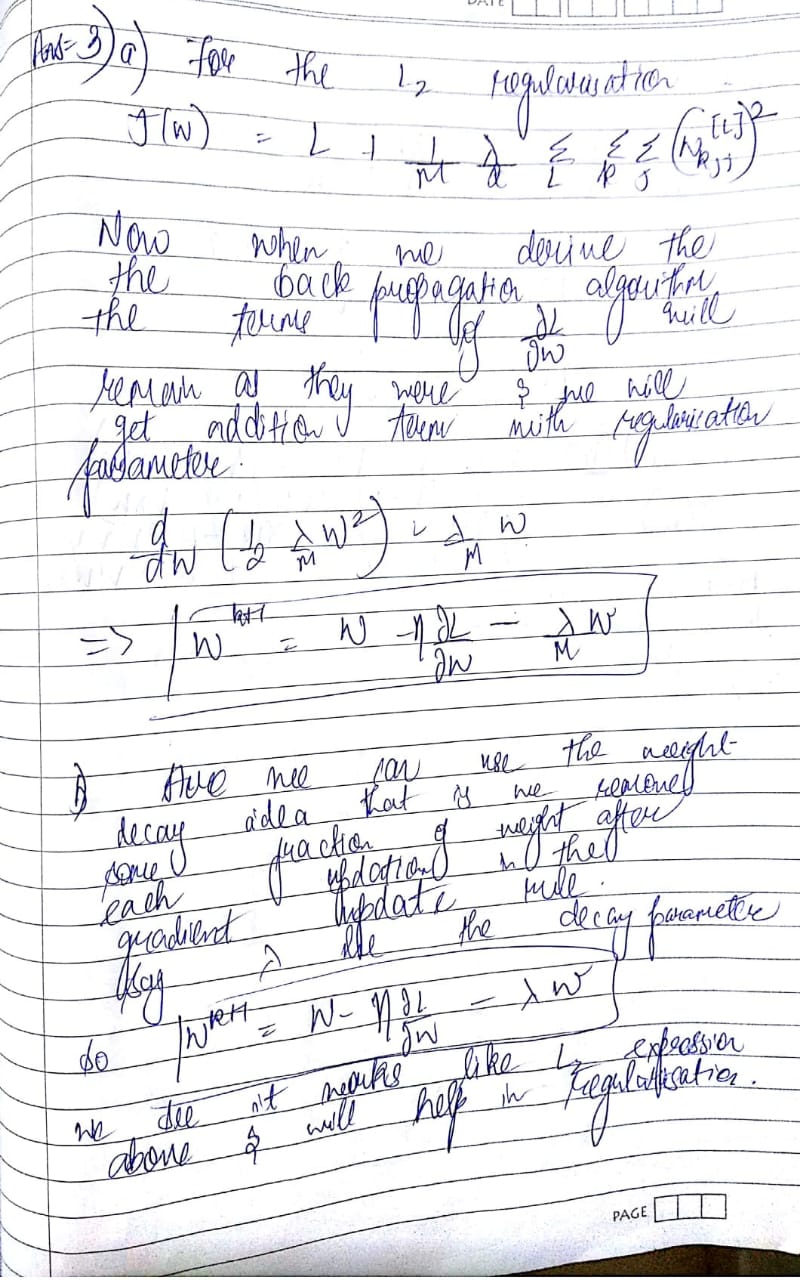 Ans= 3) a) For the L₂ regularisation
J(W) = L + 1/M λ/2 Σ_L Σ_k Σ_j (W_{k,j}^{[L]})²
Now when we derive the
the back propagation algorithm
the terms of ∂L/∂W will
remain as they were & we will
get addition term with regularisation
parameter.
d/dW (1/2 λ/M W²) = λ/M W
=> W^{k+1} = W - η ∂L/∂W - λ/M W
we can use the weight
decay idea that is we remove
some fraction of weight after
each updation in the
gradient update rule.
Say λ be the decay parameter
so W^{k+1} = W - η ∂L/∂W - λW
we see it works like L₂ expression
above & will help in Regularisation.
PAGE